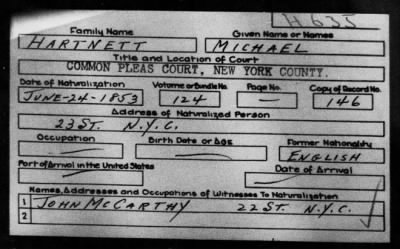 H 635
Family Name Given Name or Names
HARTNETT MICHAEL
Title and Location of Court
COMMON PLEAS COURT, NEW YORK COUNTY.
Date of Naturalization Volume or Bundle No. Page No. Copy of Record No.
JUNE-24-1853 124 — 146
Address of Naturalized Person
23 ST. N.Y.C.
Occupation Birth Date or Age Former Nationality
— — ENGLISH
Port of Arrival in the United States Date of Arrival
— —
Names, Addresses and Occupations of Witnesses To Naturalization
1 JOHN McCARTHY 22 ST. N.Y.C.
2